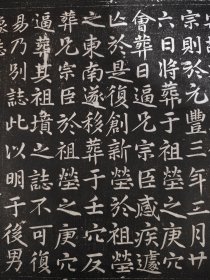 宗則於元豐三年三月廿
六日將葬于祖塋之庚穴
會葬日逼兄宗臣感疾遽
亡於是復創新塋於祖塋
之東南遂移葬于壬穴反
葬兄宗臣於祖塋之庚穴
逼葬其祖墳之誌不可復
易乃別誌此以明于後男